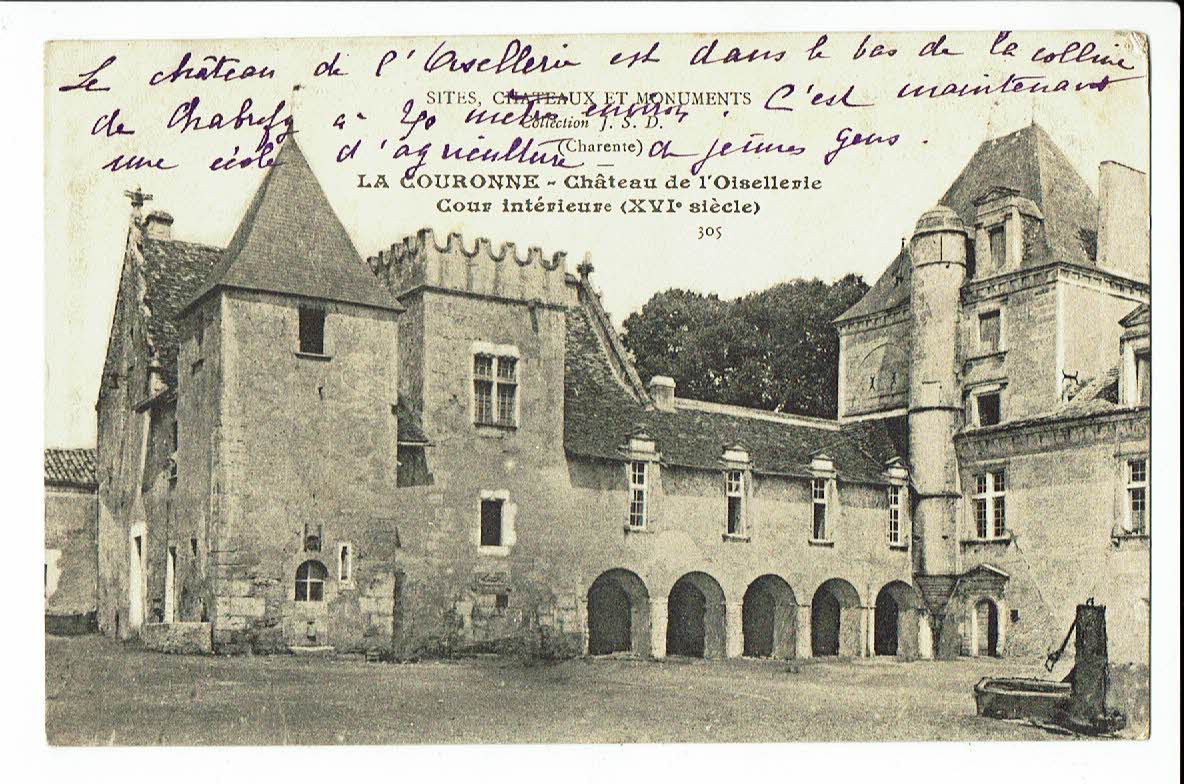 Le château de l'Oisellerie est dans le bas de la colline
de Chabrefy à 20 mètres environ. C'est maintenant
une école d'agriculture de jeunes gens.
SITES, CHATEAUX ET MONUMENTS
Collection J. S. D.
(Charente)
LA COURONNE - Château de l'Oisellerie
Cour intérieure (XVIe siècle)
305